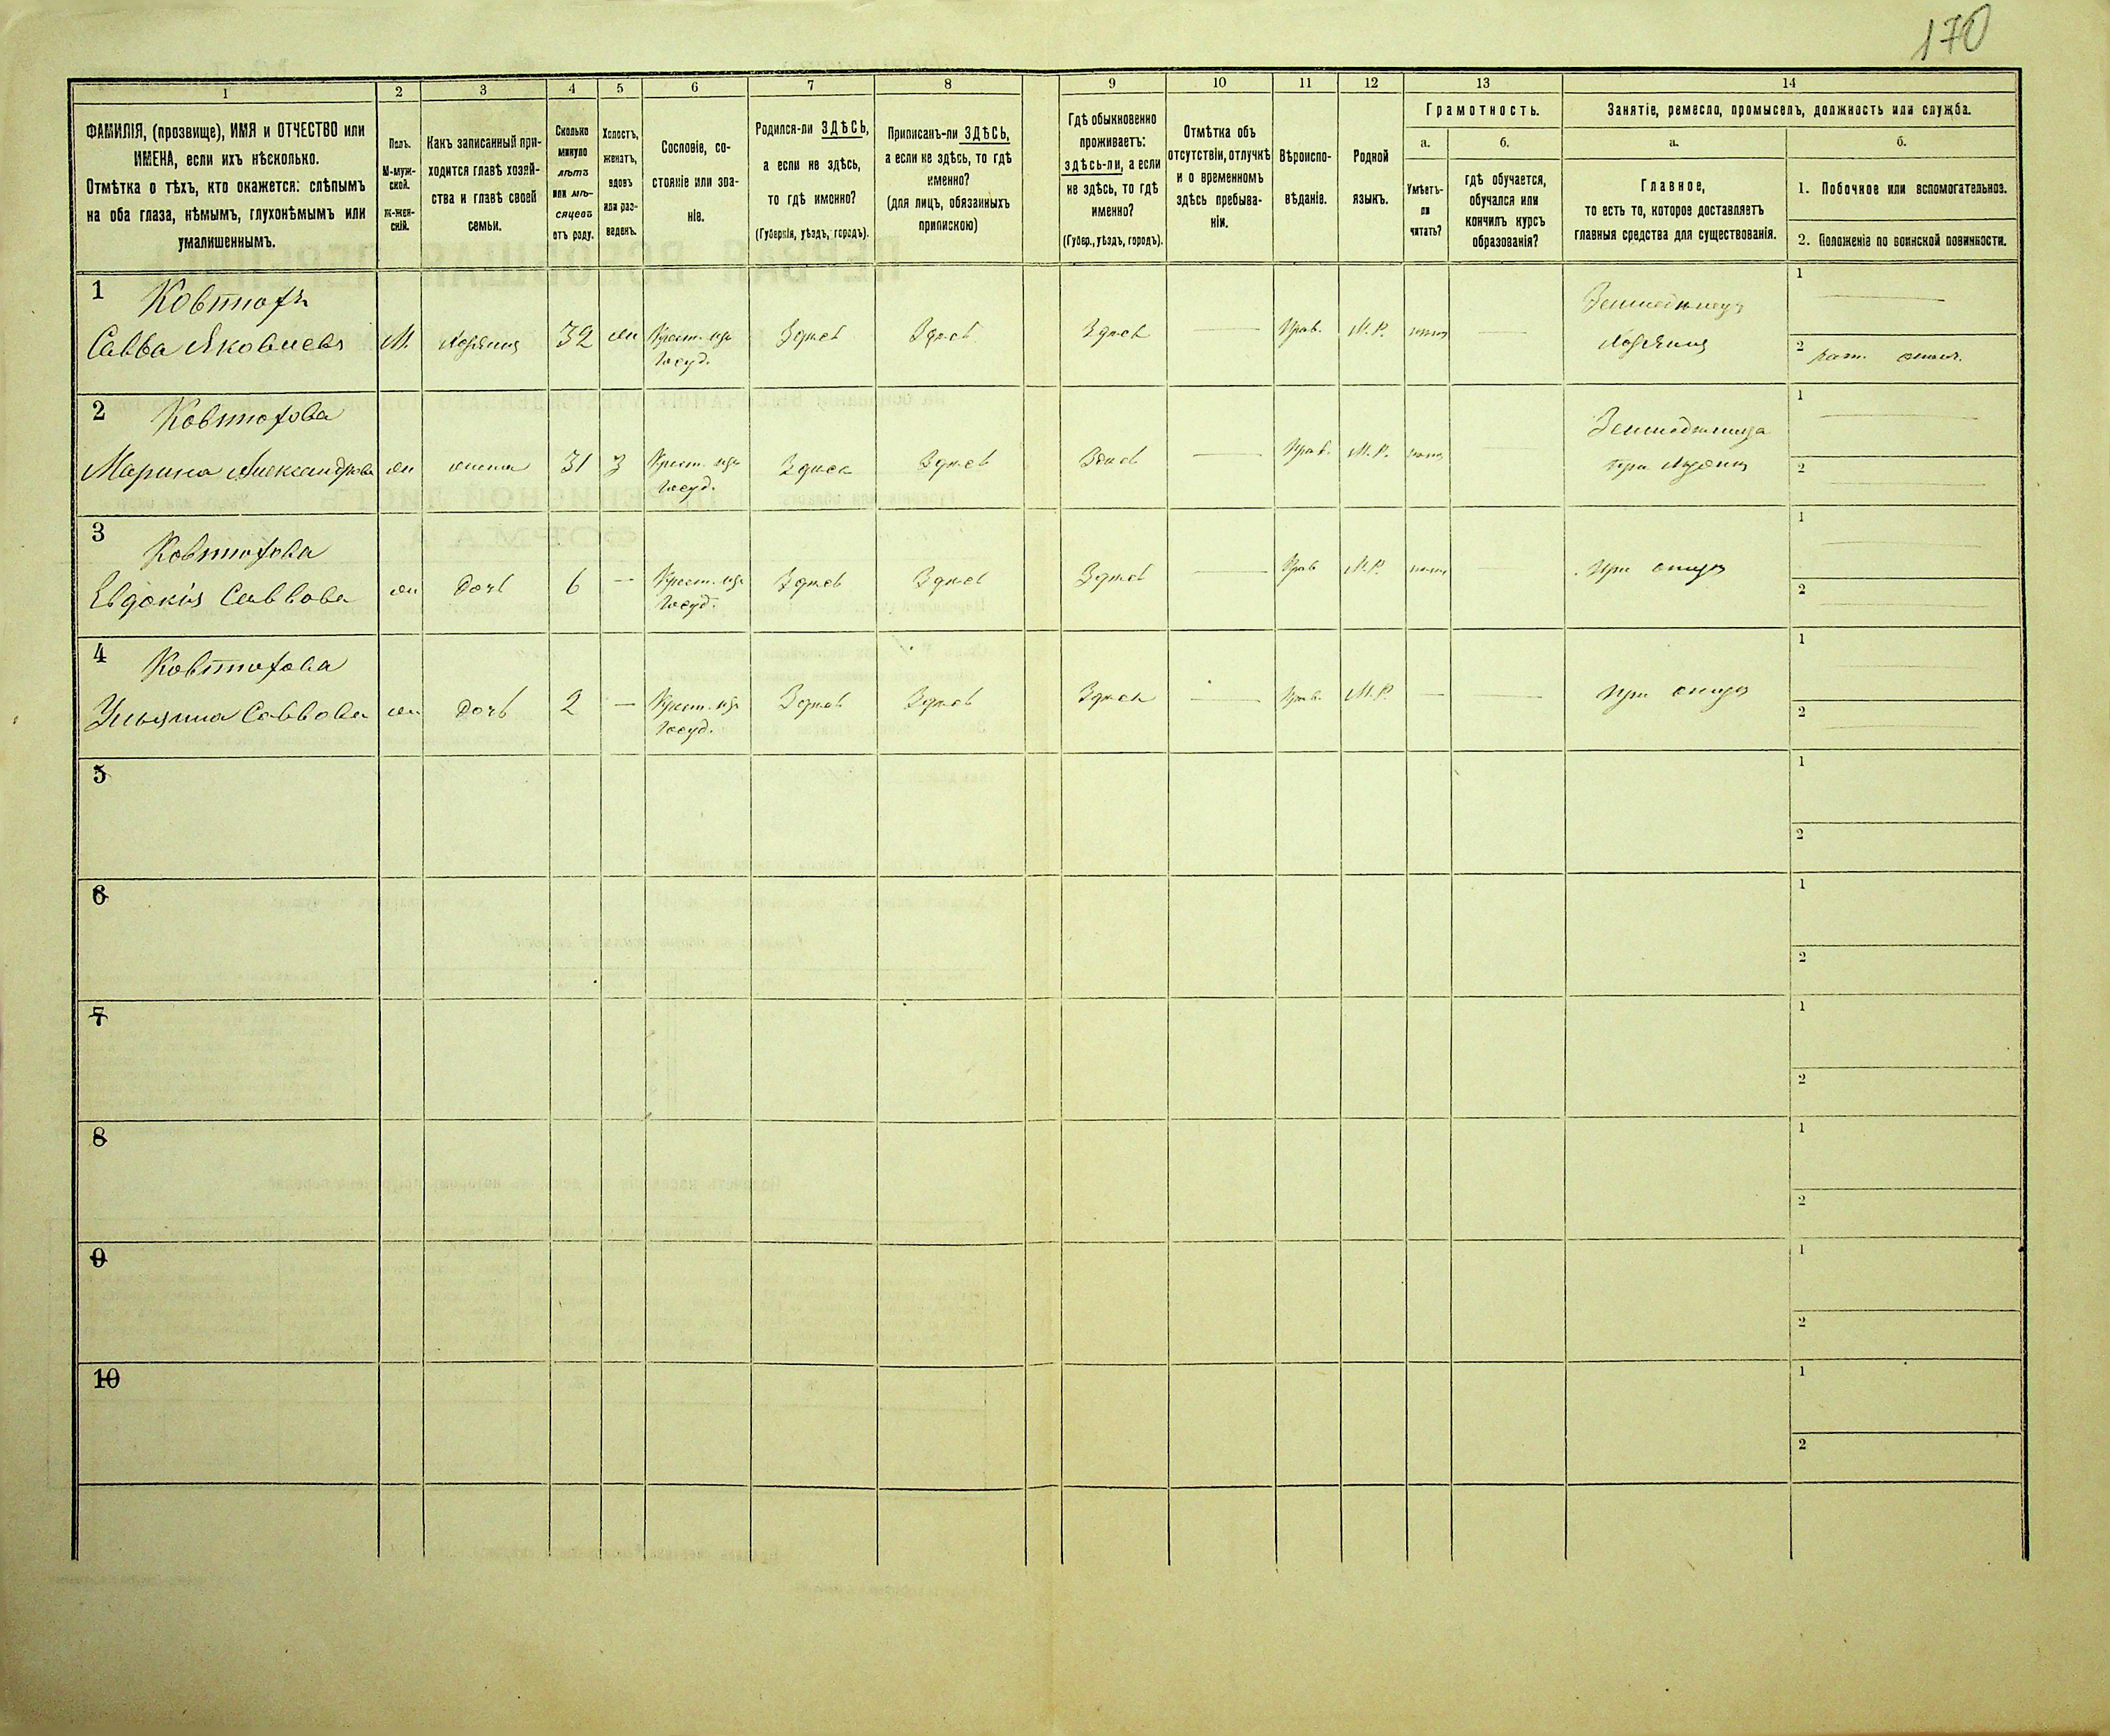 170
1
2
3
4
5
6
7
8
9
10
11
12
13
14
ФАМИЛІЯ, (прозвище), ИМЯ и ОТЧЕСТВО или
ИМЕНА, если ихъ нѣсколько.
Отмѣтка о тѣхъ, кто окажется: слѣпымъ
на оба глаза, нѣмымъ, глухонѣмымъ или
умалишеннымъ.
Полъ.
М-муж-
ской.
Ж-жен-
скій.
Какъ записанный при-
ходится главѣ хозяй-
ства и главѣ своей
семьи.
Сколько
минуло
лѣтъ
или мѣ-
сяцевъ
отъ роду.
Холостъ,
женатъ,
вдовъ
или раз-
веденъ.
Сословіе, со-
стояніе или зва-
ніе.
Родился-ли ЗДѢСЬ,
а если не здѣсь,
то гдѣ именно?
(Губернія, уѣздъ, городъ).
Приписанъ-ли ЗДѢСЬ,
а если не здѣсь, то гдѣ
именно?
(для лицъ, обязанныхъ
припискою)
Гдѣ обыкновенно
проживаетъ:
здѣсь-ли, а если
не здѣсь, то гдѣ
именно?
(Губер., уѣздъ, городъ).
Отмѣтка объ
отсутствіи, отлучкѣ
и о временномъ
здѣсь пребыва-
ніи.
Вѣроиспо-
вѣданіе.
Родной
языкъ.
Грамотность.
а.
б.
Умѣетъ-
ли
читать?
гдѣ обучается,
обучался или
кончилъ курсъ
образованія?
Занятіе, ремесло, промыселъ, должность или служба.
а.
б.
Главное,
то есть то, которое доставляетъ
главныя средства для существованія.
1. Побочное или вспомогательное.
2. Положеніе по воинской повинности.
1
Савва Яковлевъ
М.
Хозяинъ
32
Крест. изъ
Госуд.
Здѣсь
Здѣсь
Здѣсь
Прав.
М.Р.
нѣтъ
Хозяинъ
1
2
2
Марина Александрова
жена
31
Крест. изъ
Госуд.
Здѣсь
Здѣсь
Здѣсь
Прав.
М.Р.
нѣтъ
1
2
3
Евдокія Саввова
дочь
6
Крест. изъ
Госуд.
Здѣсь
Здѣсь
Здѣсь
Прав
М.Р.
нѣтъ
при отцѣ
1
2
4
Ульяна Саввова
дочь
2
Крест. изъ
Госуд.
Здѣсь
Здѣсь
Здѣсь
Прав.
М.Р.
при отцѣ
1
2
5
1
2
6
1
2
7
1
2
8
1
2
9
1
2
10
1
2